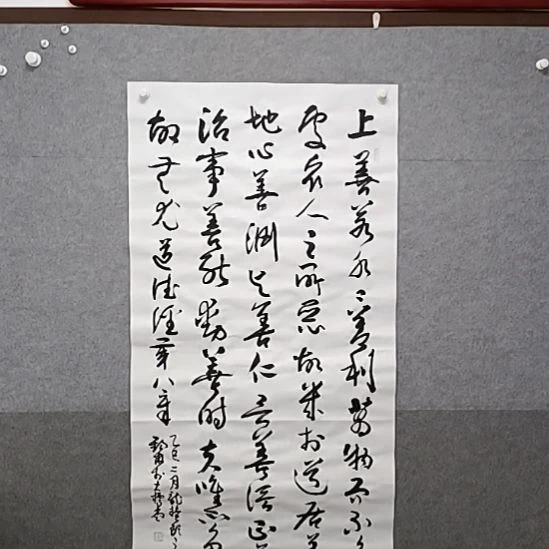 上善若水〻善利萬物而不
處衆人之所惡故幾於道居善
地心善渊與善仁言善信正善
治事善能動善时夫唯不爭
故无尤道德經第八章
乙巳二月龍抬頭